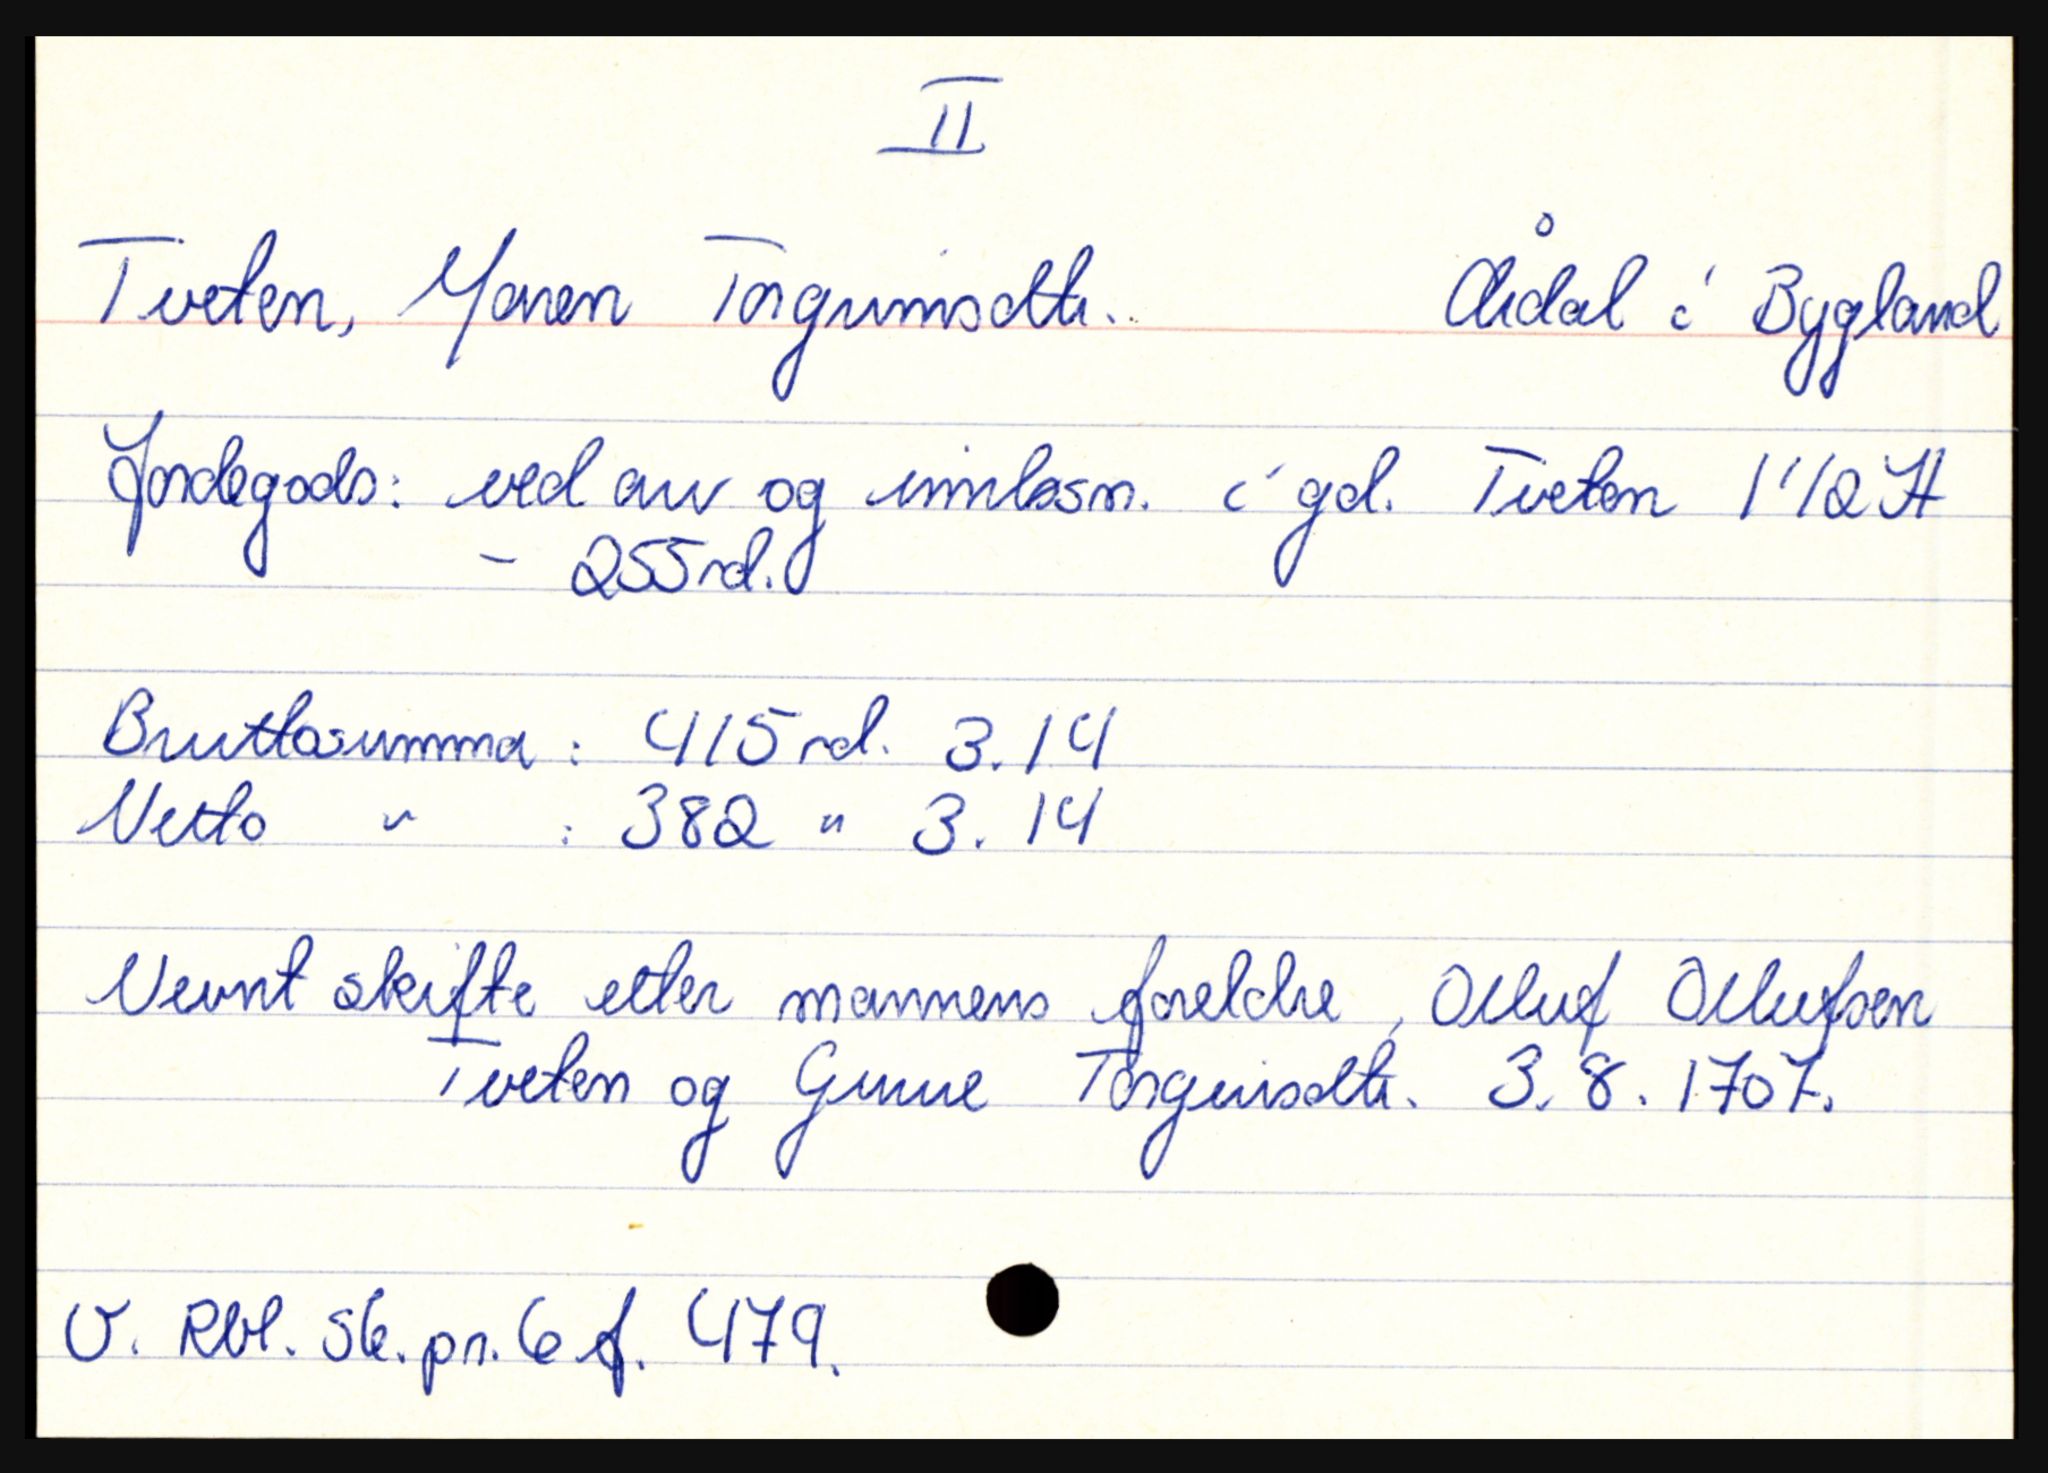 II
Tveten, Maren Torgrimsdtr. Årdal i Bygland
Jordegods: ved arv og innløsn. i gd. Tveten 1 1/2 H
- 255 rd.
Bruttosumma: 415 rd. 3.14
Netto " : 382 " 3.14
Nevnt skifte etter mannens foreldre, Olluf Ollufsen
Tveten og Gunne Torgeirsdtr. 3.8.1707.
V. Rbl. Sk.pr. 6 f. 479.